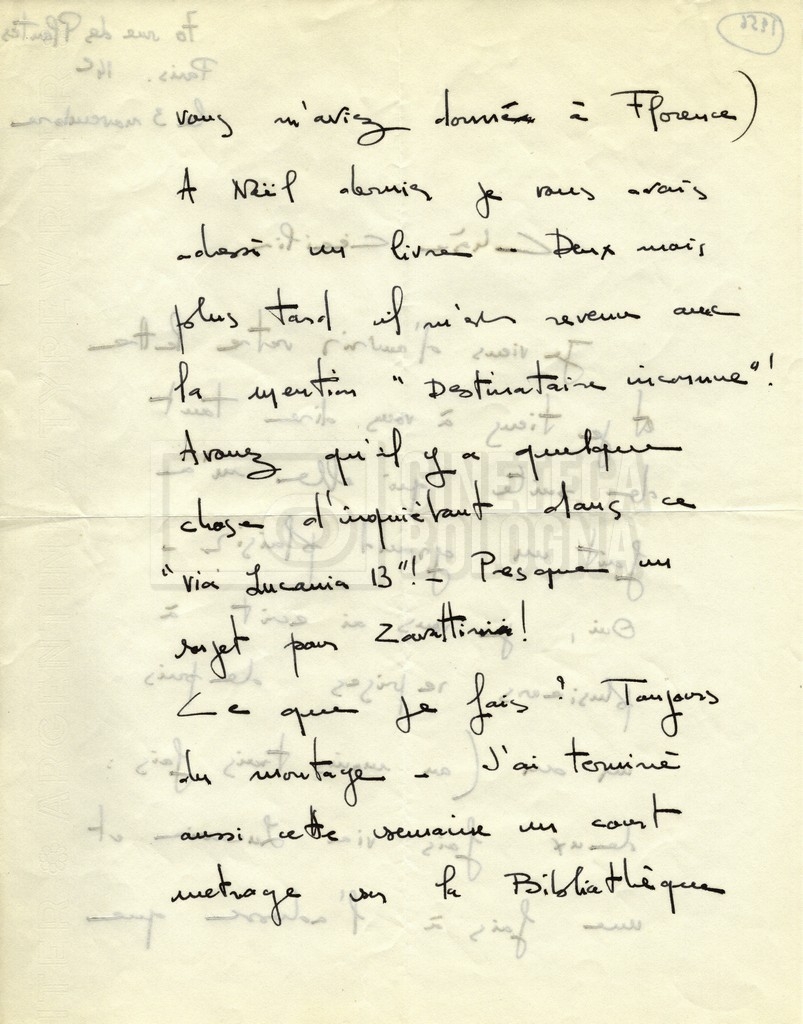 vous m'aviez donnée à Florence)
A Noël dernier je vous avais
adressé un livre - Deux mois
plus tard il m'est revenu avec
la mention "Destinataire inconnue"!
Avouez qu'il y a quelque
chose d'inquiétant dans ce
"via Lucania 13"! - Presque un
sujet pour Zavattini!
Ce que je fais? Toujours
du montage - J'ai terminé
aussi cette semaine un court
metrage sur la Bibliothèque
CINETECA
BOLOGNA
70 rue des Plantes
Paris. 14e
le 3 novembre
1956